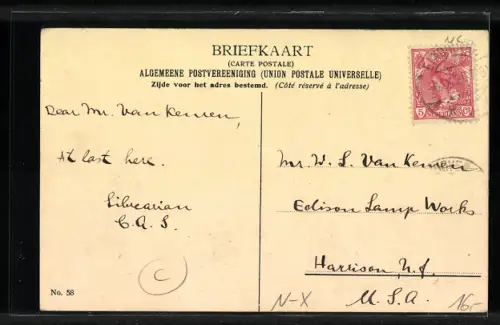 BRIEFKAART
(CARTE POSTALE)
ALGEMEENE POSTVEREENIGING (UNION POSTALE UNIVERSELLE)
Zijde voor het adres bestemd. (Côté réservé à l'adresse)
Dear Mr. Van Kemen,
At last here.
Librarian
C.A.S.
Mr. W. L. Van Kemen
Edison Lamp Works
Harrison, N.J.
U.S.A.
5
No. 58
C
N-X
16-